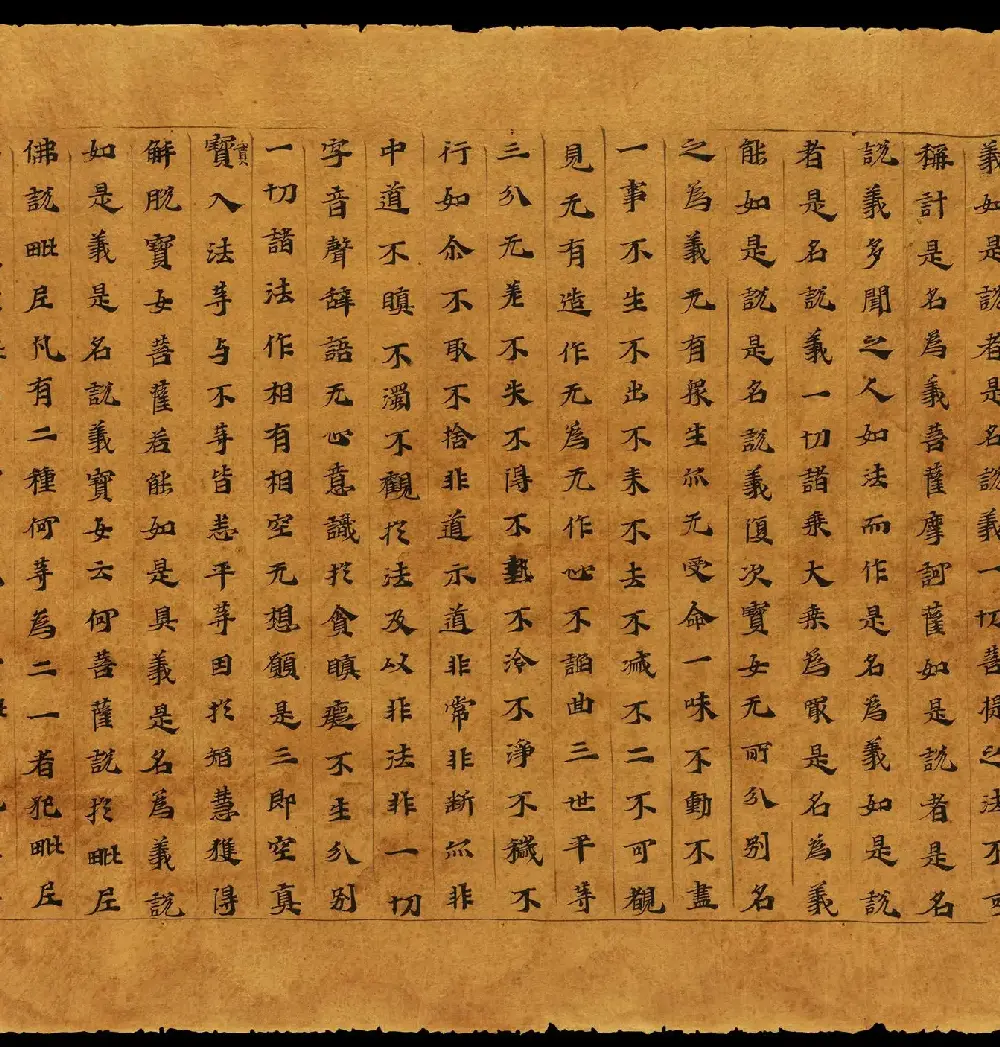 義如是說者是名說義一切菩提之法不可
稱計是名為義菩薩摩訶薩如是說者是名
說義多聞之人如法而作是名為義如是說
者是名說義一切諸乘大乘為眾是名為義
能如是說是名說義復次寶女无所分別名
之為義无有眾生亦无受命一味不動不盡
一事不生不出不來不去不減不二不可觀
見无有造作无為无作心不諂曲三世平等
三分无差不失不得不熱不冷不淨不穢不
行如尒不取不捨非道示道非常非斷亦非
中道不瞋不濁不觀於法及以非法非一切
字音聲辞語无心意識於貪瞋癡不生分別
一切諸法作相有相空无想願是三即空真
寶入法等与不等皆悉平等因於智慧獲得
實
解脫寶女菩薩若能如是具義是名為義說
如是義是名說義寶女云何菩薩說於毗尼
佛說毗尼凡有二種何等為二一者犯毗尼